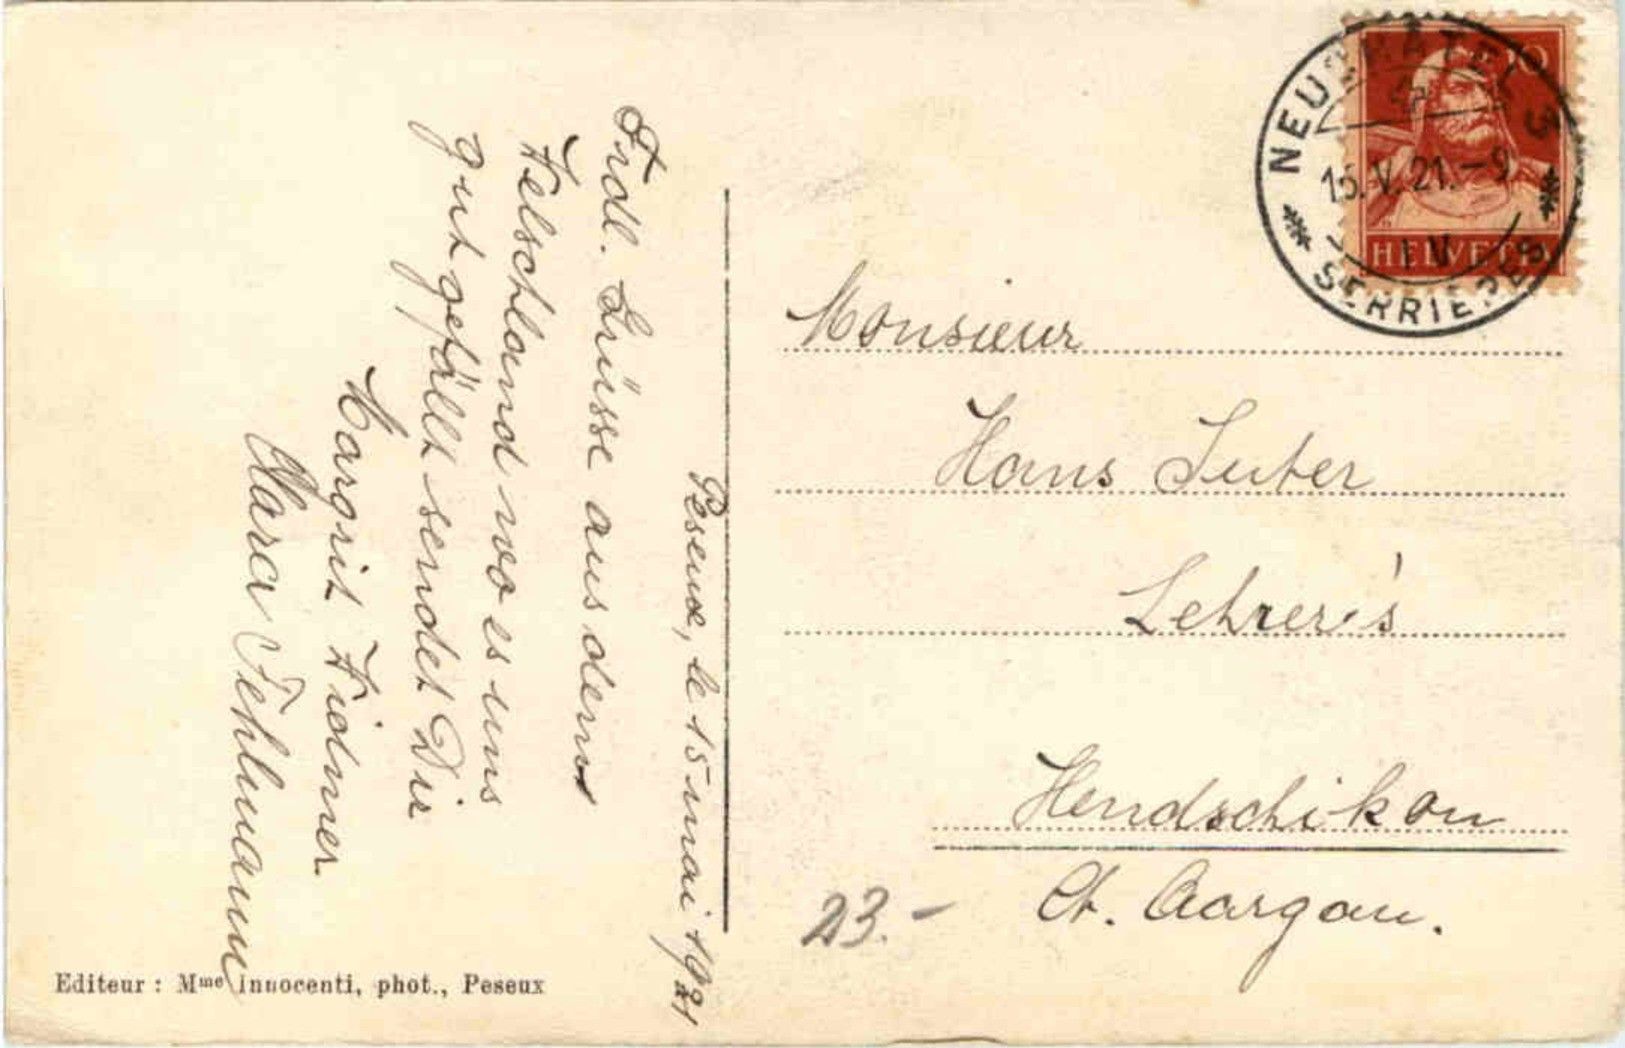 Peseux, le 15 mai 1921
Frdl. Grüsse aus dem
Welschland wo es uns
gut gefällt sendet Dir
Margrit Widmer
Klara Fehlmann
Editeur : Mme Innocenti, phot., Peseux
NEUCHÂTEL 8
15.V.21.–9
IV
SERRIERES
10
HELVETIA
Monsieur
Hans Suter
Lehrer's
Hendschikon
Ct. Aargau.
23.-